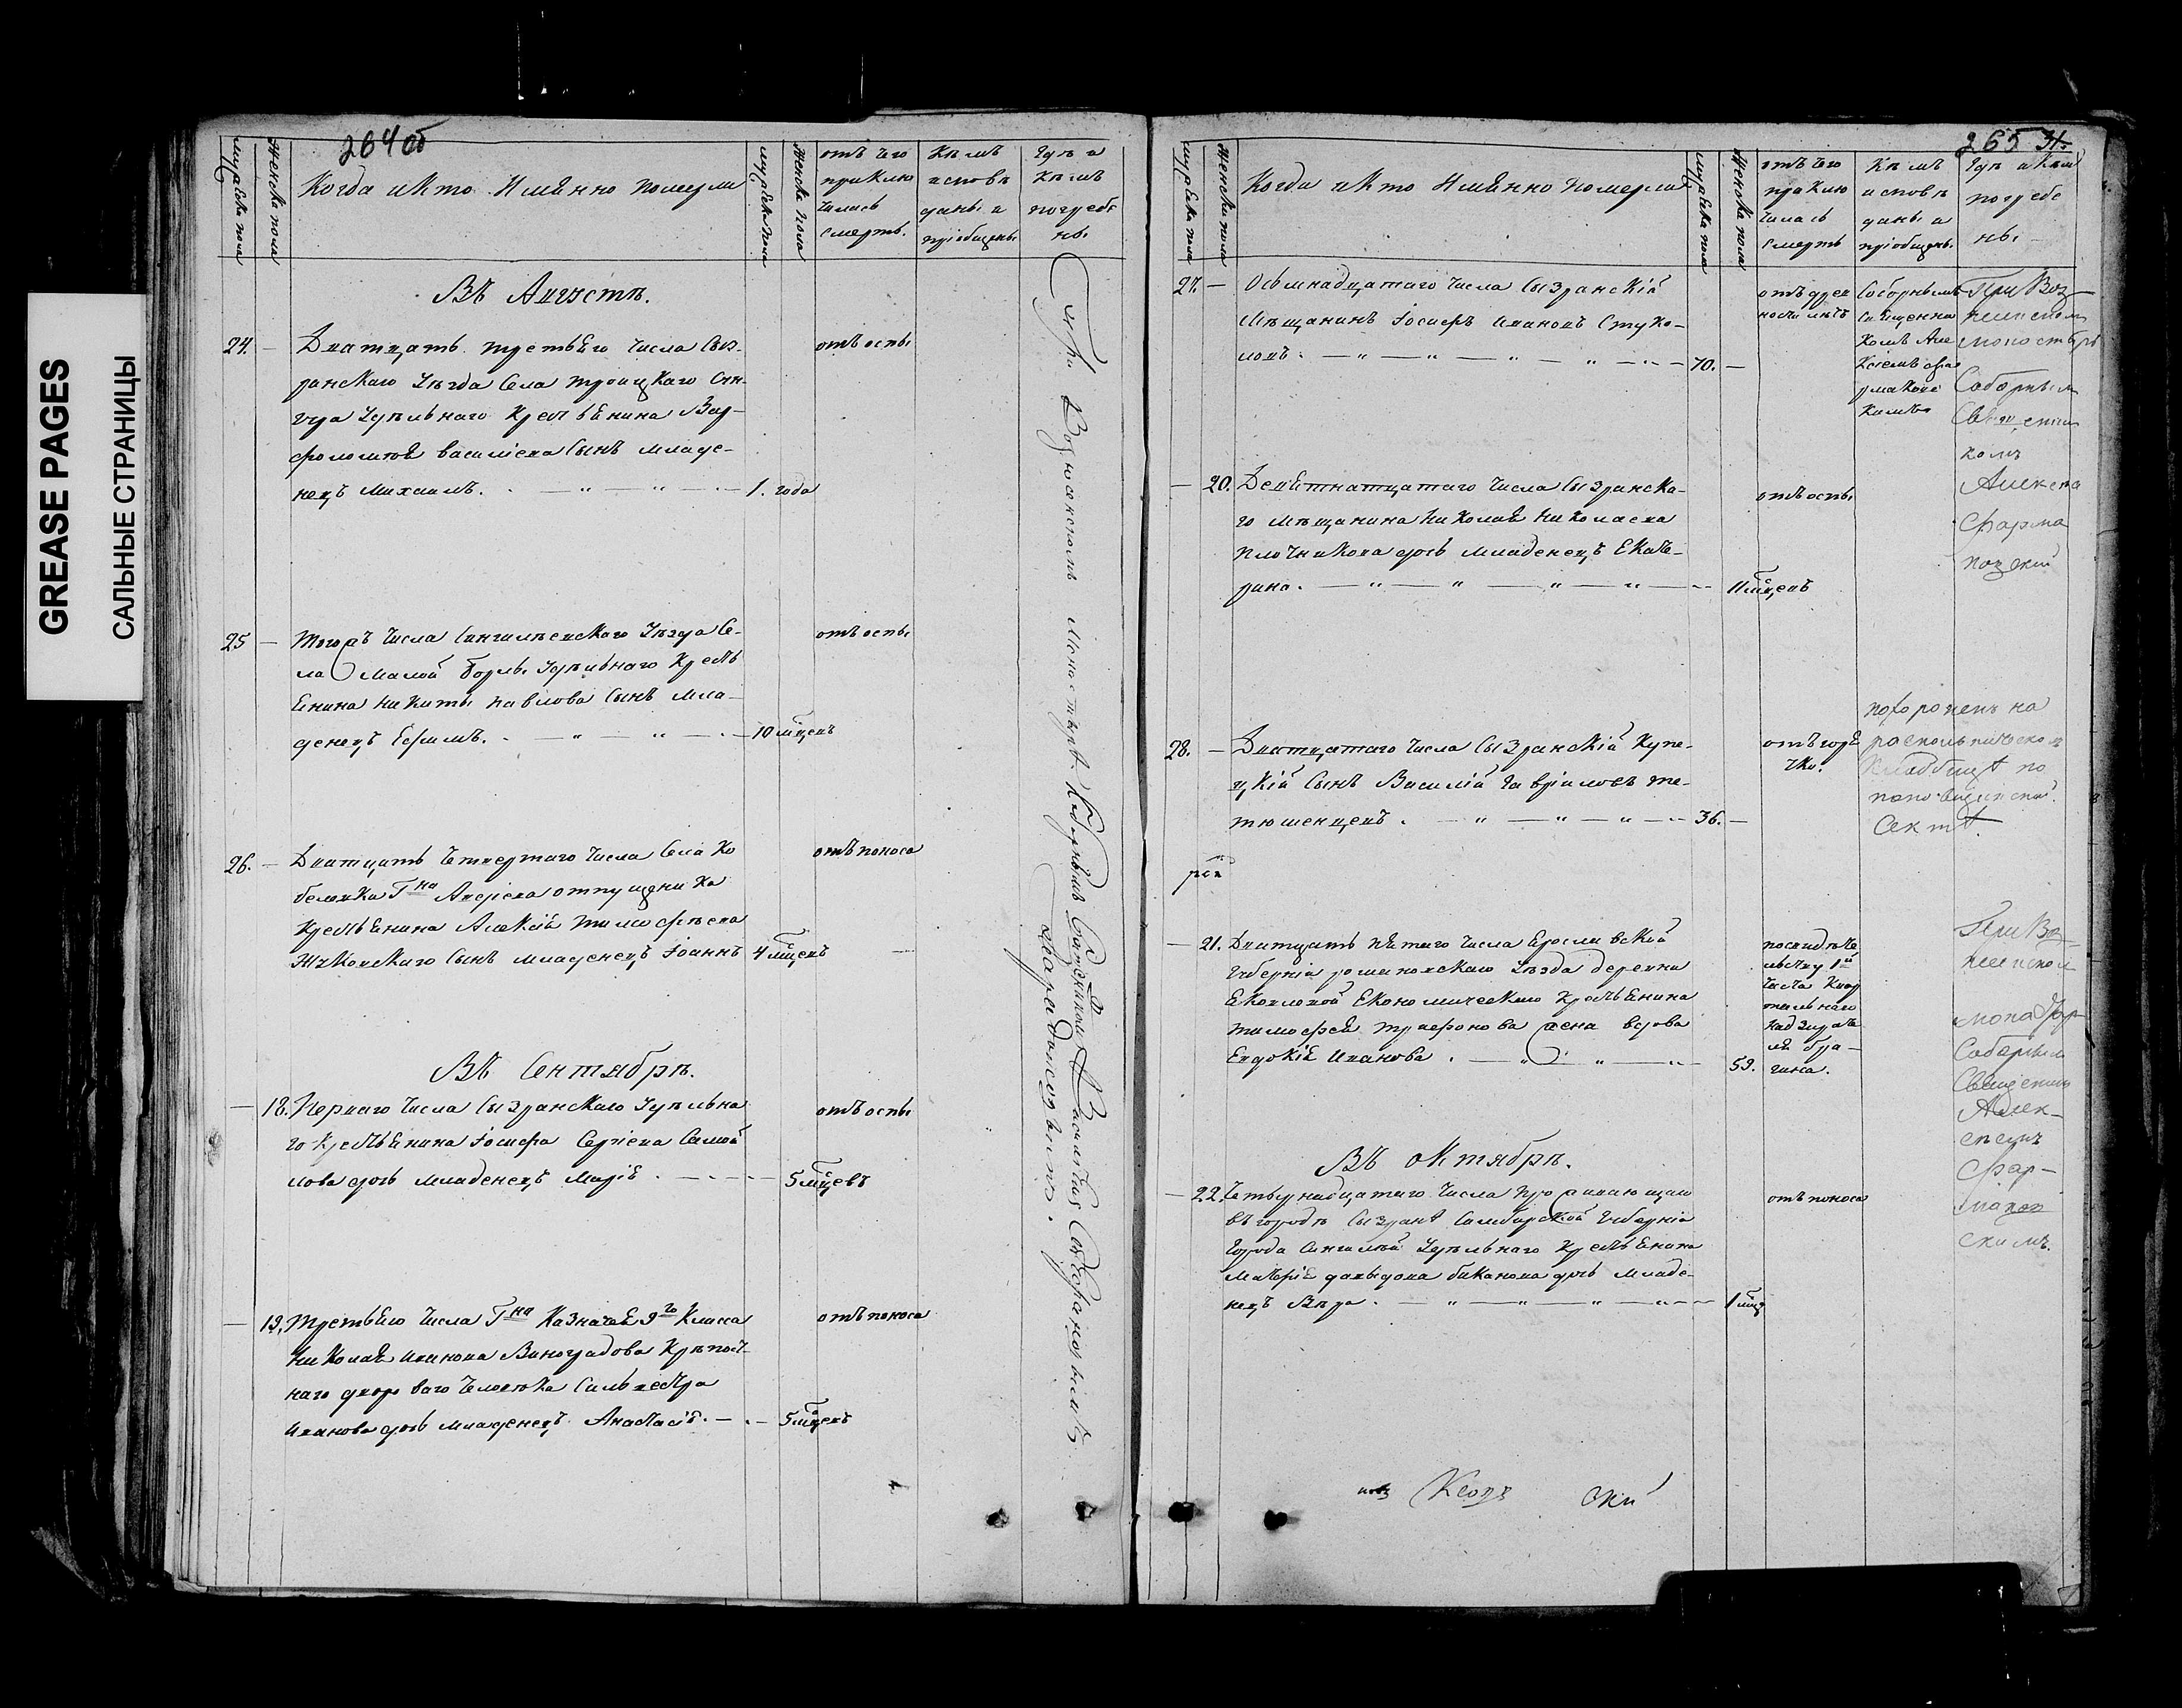 GREASE PAGES
САЛЬНЫЕ СТРАНИЦЫ
264об
Мужеска пола
Женска пола
Когда и Кто Имѣнно померли
Мужеска пола
Женска пола
отъ чего
приклю
чилась
смерть.
Кѣмъ
исповѣ
даны и
пріобщены
Гдѣ и
Кѣмъ
погребе
ны
Въ Августѣ.
24. — Дватцать третьяго числа Сыз-
ранскаго Уѣзда Села троицкаго Сун-
гура Удѣльнаго Крестьянина Вар-
фоломѣя васильева Сынъ младе-
нецъ Михаилъ. 1. года
отъ оспы
25 — Тогожъ числа Сингилѣевскаго Уѣзда Се-
ла Малой Борлы Удѣльнаго Кресть
янина Никиты павлова Сынъ мла-
денецъ Ефимъ. 10 мцевъ
отъ оспы
26. — Дватцать Четвертаго числа Села Ко
белевка Гна отпущенника
Крестьянина Алексѣя тимофѣева
Сынъ младенецъ Іоаннъ 4 мцевъ
отъ поноса
Въ Сентябрѣ.
— 18. Перваго числа Сызранскаго Удѣльна
го Крестьянина Іосифа Сергѣева Самой
лова дочь младенецъ Марія 5 мцевъ
отъ оспы
— 19. Третьяго числа Гна Казначея 9го Класса
Николая иванова Виноградова Крѣпост-
наго дворового человѣка Сильвестра
иванова дочь младенецъ Анастасія. 5 мцевъ
отъ поноса
При Вознесенскомъ Монастырѣ Соборнымъ Священникомъ Стефановымъ
265 31.
Мужеска пола
Женска пола
Когда и Кто Имѣнно померли
Мужеска пола
Женска пола
отъ чего
приклю
чилась
смерть
Кѣмъ
исповѣ
даны и
пріобщены
Гдѣ и Кѣм
погребе
ны
27. — Осьмнадцатаго числа Сызранскій
Мѣщанинъ Іосифъ ивановъ Стуко-
ловъ. 70. —
отъ древ
ности лѣтъ
Соборнымъ
Священни
комъ Але
ксѣемъ фар
маков
скимъ
При Воз
несенском
монастырѣ
Соборным
Священни
комъ
Алексѣ
Фарма
ковски
— 20. Девятнатцатаго числа Сызранска-
го Мѣщанина Николая Николаева
плотникова дочь младенецъ Екате-
рина. 11 мцевъ
отъ оспы
28. — Дватцатаго числа Сызранскій Купе-
цкій Сынъ Василій Гавриловъ те-
тюшенцевъ. 36. —
отъ горя
чки.
похоронен на
раскольническом
кладбищѣ по
поповщинской
Сектѣ.
— 21. Дватцать пятаго числа Ерославской
Губерніи романовскаго Уѣзда деревни
Економическаго Крестьянина
тимофея трифонова жена вдова
Евдокія иванова. 59.
по свидѣте
льству 1й
части Квар
тальнаго
надзирате
ля бра-
гина.
При Воз-
несенском
Соборным
Священни
Алек-
сѣемъ
Фар-
маков
скимъ.
Въ октябрѣ.
— 22. Четвернадцатаго числа проживающаго
въ городѣ Сызранѣ Симбирской Губерніи
города Сингилѣя Удѣльнаго Крестьянина
давыдова биканова дочь младе-
нецъ Вѣра. 1 мцъ
отъ поноса